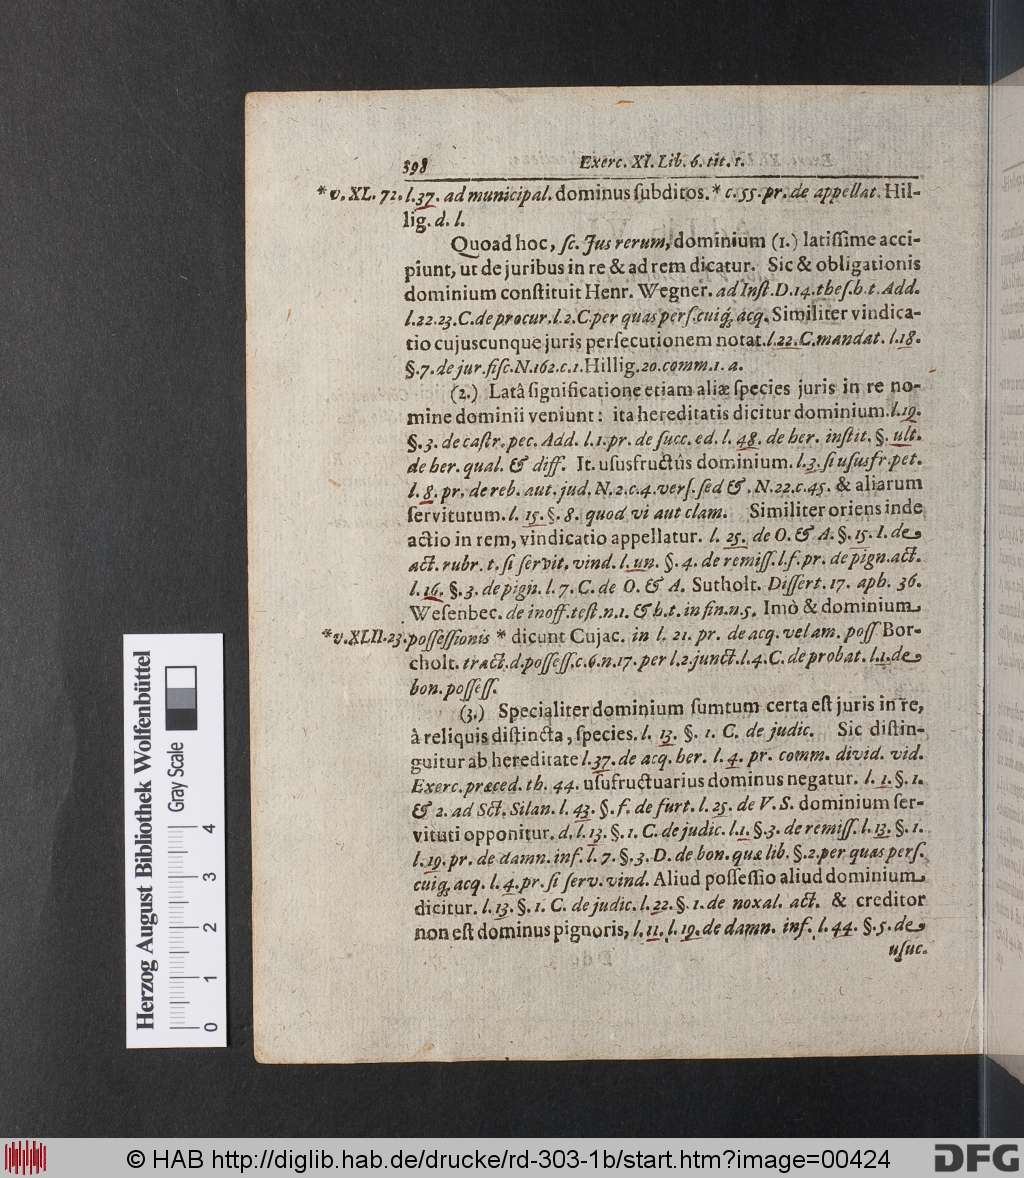 398 Exerc. XI. Lib. 6. tit. 1.
* v. XL. 72. l. 37. ad municipal. dominus ſubditos. * c. 55. pr. de appellat. Hil-
lig. d. l.
Quoad hoc, ſc. Jus rerum, dominium (1.) latiſſime acci-
piunt, ut de juribus in re & ad rem dicatur. Sic & obligationis
dominium conſtituit Henr. Wegner. ad Inſt. D. 14. theſ. h. t. Add.
l. 22. 23. C. de procur. l. 2. C. per quas perſ. cuiq; acq. Similiter vindica-
tio cujuscunque juris perſecutionem notat. l. 22. C. mandat. l. 18.
§. 7. de jur. fiſc. N. 162. c. 1. Hillig. 20. comm. 1. a.
(2.) Latâ ſignificatione etiam aliæ ſpecies juris in re no-
mine dominii veniunt: ita hereditatis dicitur dominium. l. 19.
§. 3. de caſtr. pec. Add. l. 1. pr. de ſucc. ed. l. 48. de her. inſtit. §. ult.
de her. qual. & diff. It. uſusfructûs dominium. l. 3. ſi uſusfr. pet.
l. 8. pr. de reb. aut. jud. N. 2. c. 4. verſ. ſed &. N. 22. c. 45. & aliarum
ſervitutum. l. 15. §. 8. quod vi aut clam. Similiter oriens inde
actio in rem, vindicatio appellatur. l. 25. de O. & A. §. 15. I. de
act. rubr. t. ſi ſervit. vind. l. un. §. 4. de remiſſ. l. f. pr. de pign. act.
l. 16. §. 3. de pign. l. 7. C. de O. & A. Sutholt. Diſſert. 17. aph. 36.
Weſenbec. de inoff. teſt. n. 1. & h. t. in fin. n. 5. Imò & dominium
* v. XLII. 23. poſſeſſionis * dicunt Cujac. in l. 21. pr. de acq. vel am. poſſ. Bor-
cholt. tract. d. poſſeſſ. c. 6. n. 17. per l. 2. junct. l. 4. C. de probat. l. 1. de
bon. poſſeſſ.
(3.) Specialiter dominium ſumtum certa eſt juris in re,
à reliquis diſtincta, ſpecies. l. 13. §. 1. C. de judic. Sic diſtin-
guitur ab hereditate l. 37. de acq. her. l. 4. pr. comm. divid. vid.
Exerc. præced. th. 44. uſufructuarius dominus negatur. l. 1. §. 1.
& 2. ad Sct. Silan. l. 43. §. f. de furt. l. 25. de V. S. dominium ſer-
vituti opponitur. d. l. 13. §. 1. C. de judic. l. 1. §. 3. de remiſſ. l. 13. §. 1.
l. 19. pr. de damn. inf. l. 7. §. 3. D. de bon. quæ lib. §. 2. per quas perſ.
cuiq; acq. l. 4. pr. ſi ſerv. vind. Aliud poſſeſſio aliud dominium
dicitur. l. 13. §. 1. C. de judic. l. 22. §. 1. de noxal. act. & creditor
non eſt dominus pignoris, l. 11. l. 19. de damn. inf. l. 44. §. 5. de
uſuc.
Herzog August Bibliothek Wolfenbüttel
Gray Scale
0 1 2 3 4
© HAB http://diglib.hab.de/drucke/rd-303-1b/start.htm?image=00424
DFG